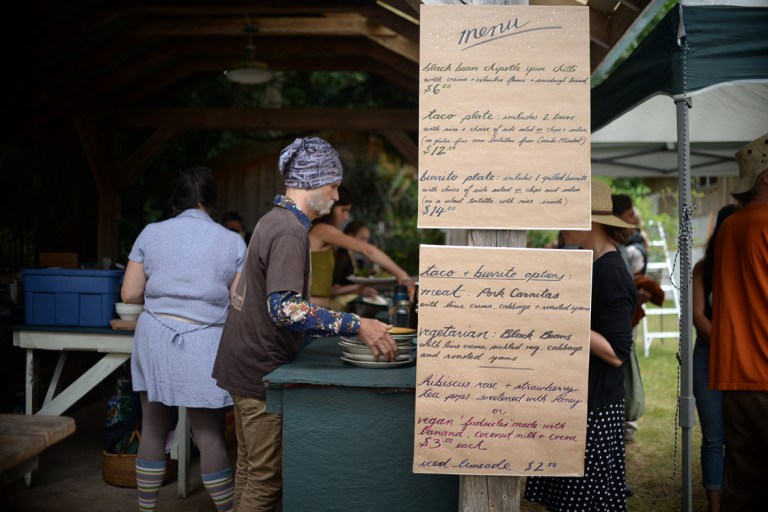 menu
black bean chipotle yam chili
with crema + cilantro flowers + sourdough bread
$6.00
taco plate: includes 2 tacos
with rice + choice of side salad or chips + salsa
(on gluten free corn tortillas from Market)
$12.00
burrito plate: includes 1 grilled burrito
with choice of side salad or chips and salsa
(on a wheat tortilla with rice inside)
$14.00
taco + burrito options:
meat: Pork Carnitas
with lime crema, cabbage + roasted yams
vegetarian: Black Beans
with lime crema, pickled veg, cabbage
and roasted yams
hibiscus rose + strawberry
tea pops sweetened with honey
or
vegan 'fudsicles' made with
banana, coconut milk + cocoa
$3.00 each
iced limeade $2.00